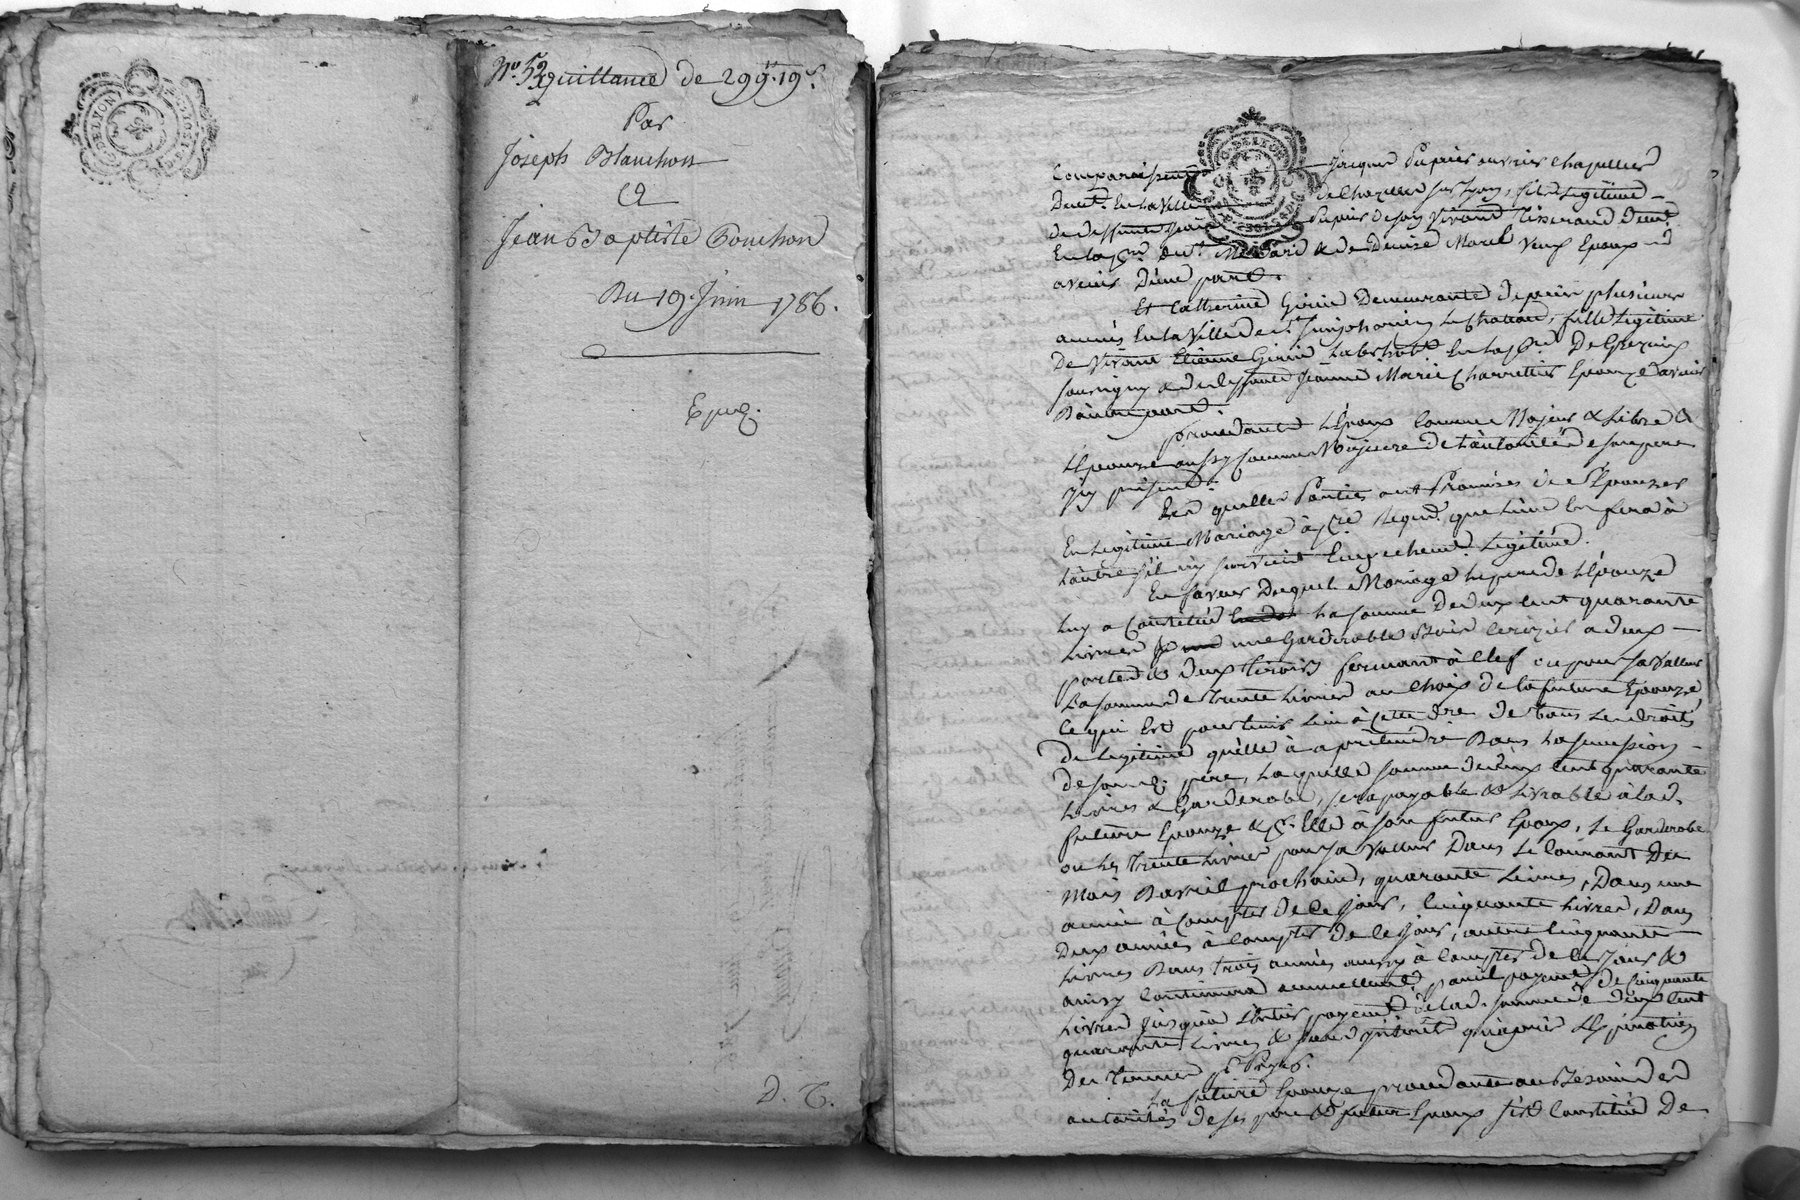 G. DE LYON
No. 52 quittance de 299# 19s.
Par
Joseph Blanchon
A
Jean Baptiste Bouchon
Du 19. Juin 1786.
Exped.
D. T.
G. DE LYON
Comparaissent Jacques Dupuis ouvrier Chapellier
Demt. En la Ville de Chazelles sur Lyon, fils Legitime
de deffunt Dupuis de son Vivant Tisserand Demt.
En la psse de St. Medard & de Denize Morel veux Epoux
a venir D'une part.
Et Catherine Girin Demeurante depuis plusieurs
années En la Ville de St. Simphorien Le Chateau, fille Legitime
De Vivant Etienne Girin habitt En la psse De Grezieux
Souvigny & de deffunte Jeanne Marie Charretier Epouze a venir
D'autre part.
Procedants L'Epoux Comme Majeur & Libre &
L'Epouze aussy Comme Majeure De L'autorité de son pere
Icy présent.
Les quelles Parties ont Promises de S'Epouzer
En Legitime Mariage à pre Requon que L'une En fera à
L'autre s'il n'y survient Empechemt Legitime.
En faveur Duquel Mariage Le pere de L'Epouze
Luy a Constitué La somme De deux Cent quarante
Livres & une Garderobbe Bois Cerizier a deux
portes & deux tiroirs fermant à Clef ou pour sa Valleur
La somme de trente Livres au Choix de la future Epouze
Ce qui Est pour tenir Lieu à Cette dre de tous Les droits
de Legitime qu'elle à a prétendre Dans La succession
de son d. père, Laquelle somme de deux Cent quarante
Livres & Garderobe, sera payable & Livrable à lad.
future Epouze & pr Elle à son futur Epoux, Le Garderobe
ou Les trente Livres pour sa Valleur Dans Le Courant Du
Mois D'avril prochain, quarante Livres, Dans une
année à Compter De Ce Jour, Cinquante Livres, Dans
Deux années à Compter De Ce Jour, autre Cinquante
Livres Dans trois années aussy à Compter de Ce Jour &
ainsy Continuera annuellemt pareil payemt de Cinquante
Livres Jusqu'à L'Entier payemt de lad. somme de deux Cent
quarante Livres & sans Intérêt qu'apres L'Expiration
Des termes
La future Epouze procedante au Bezoin des
autorités de ses père & futur Epoux s'est Constitué De